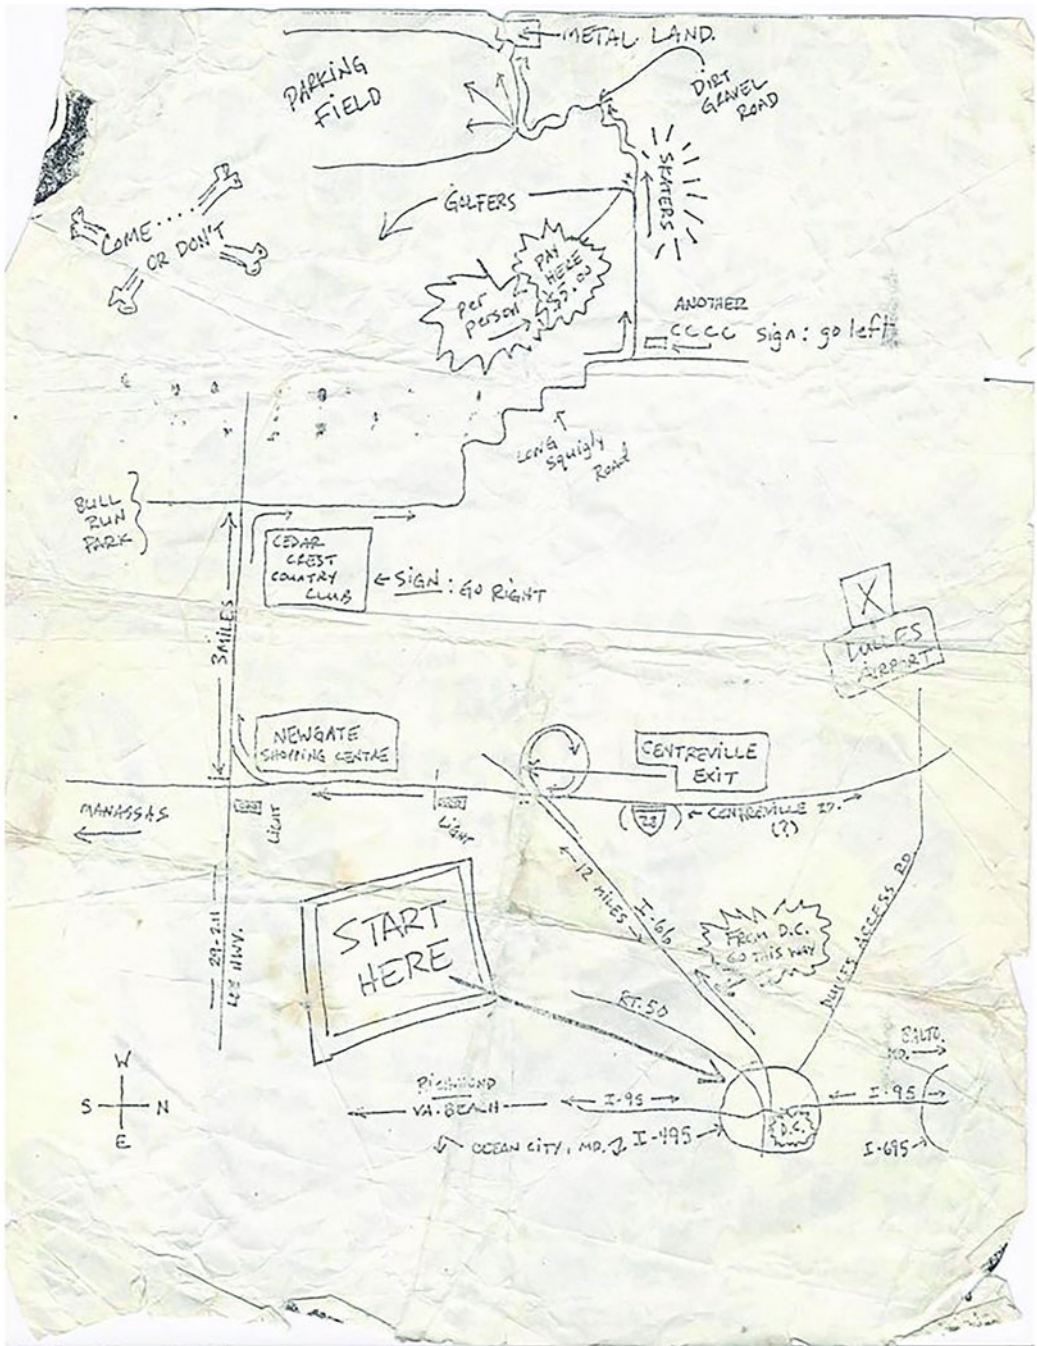 METAL LAND.
PARKING
FIELD
DIRT
GRAVEL
ROAD
SKATERS
GOLFERS
COME ....
OR DON'T
PAY
HERE
$5.00
per
person
ANOTHER
CCCC sign: go left
LONG
Squigly
ROAD
BULL
RUN
PARK
CEDAR
CREST
COUNTRY
CLUB
SIGN: GO RIGHT
3 MILES
X
DULLES
AIRPORT
NEWGATE
SHOPPING CENTRE
CENTREVILLE
EXIT
MANASSAS
LIGHT
LIGHT
(28) CENTREVILLE RD.
(?)
12 MILES
I-66
FROM D.C.
GO THIS WAY
DULLES ACCESS RD
START
HERE
29-211
LEE HWY.
RT. 50
BALTO.
MD.
W
S N
E
RICHMOND
VA. BEACH
I-95
I-95
D.C.
OCEAN CITY, MD.
I-495
I-695